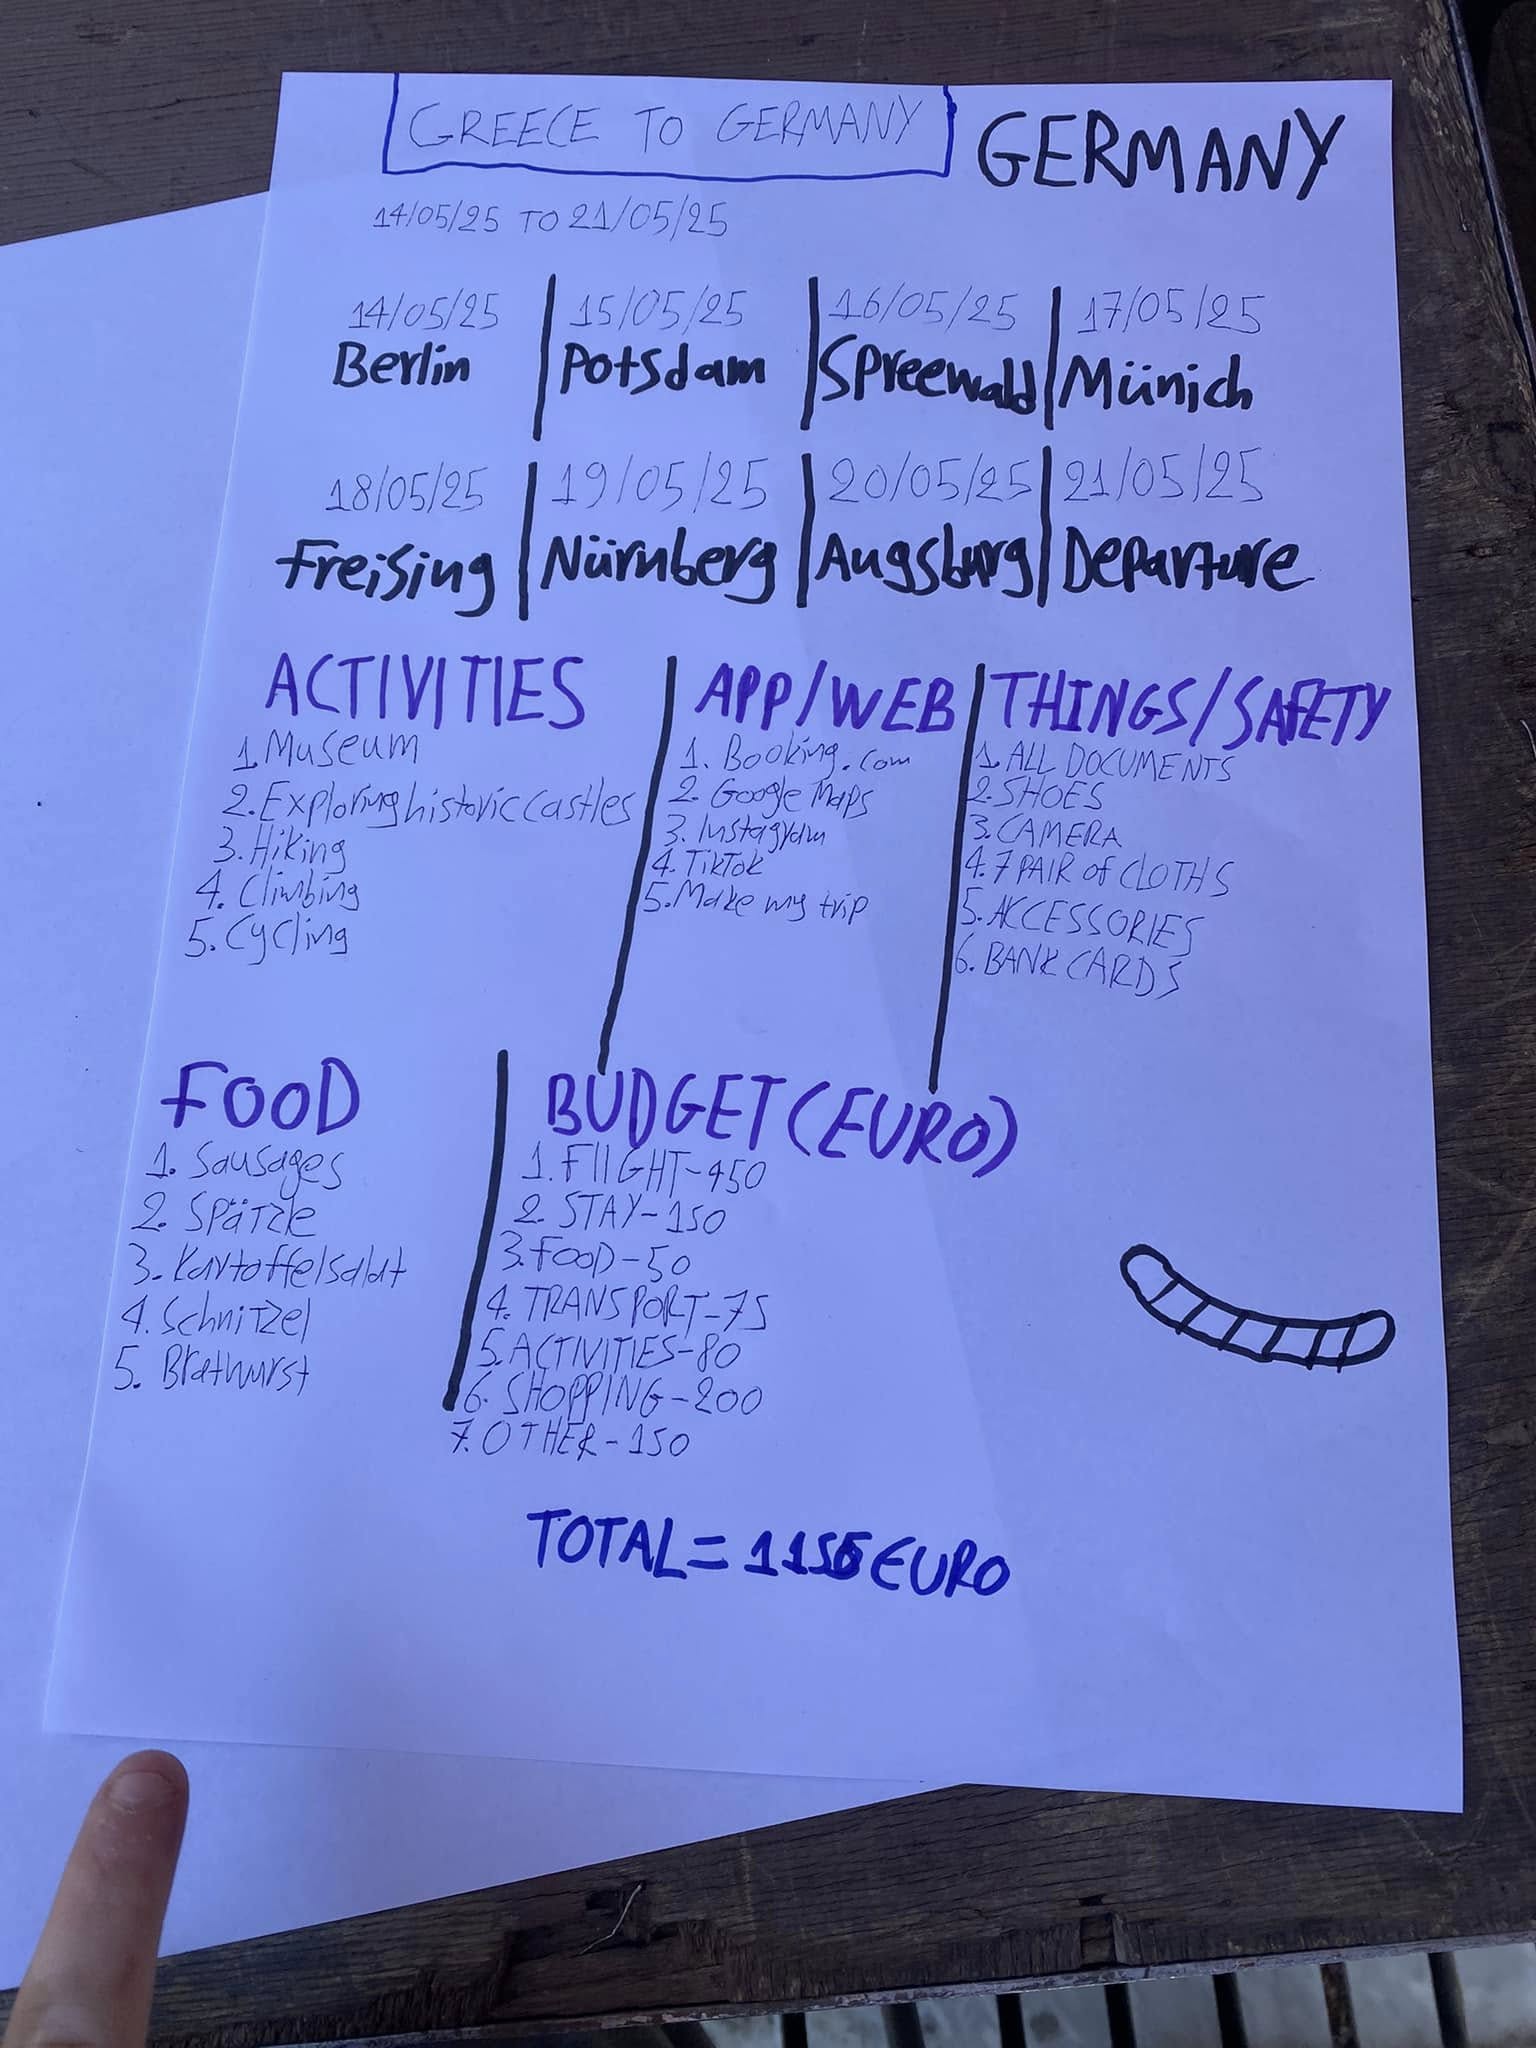 GREECE TO GERMANY
GERMANY
14/05/25 TO 21/05/25
14/05/25
Berlin
15/05/25
Potsdam
16/05/25
Spreewald
17/05/25
Münich
18/05/25
Freising
19/05/25
Nürnberg
20/05/25
Augsburg
21/05/25
Departure
ACTIVITIES
1. Museum
2. Exploring historic castles
3. Hiking
4. Climbing
5. Cycling
APP/WEB
1. Booking.com
2. Google Maps
3. Instagram
4. TikTok
5. Make my trip
THINGS/SAFETY
1. ALL DOCUMENTS
2. SHOES
3. CAMERA
4. 7 PAIR of CLOTHS
5. ACCESSORIES
6. BANK CARDS
FOOD
1. Sausages
2. Spätzle
3. Kartoffelsalat
4. Schnitzel
5. Bratwurst
BUDGET (EURO)
1. FlIGHT-450
2. STAY-150
3. FOOD-50
4. TRANSPORT-75
5. ACTIVITIES-80
6. SHOPPING-200
7. OTHER-150
TOTAL= 1155 EURO